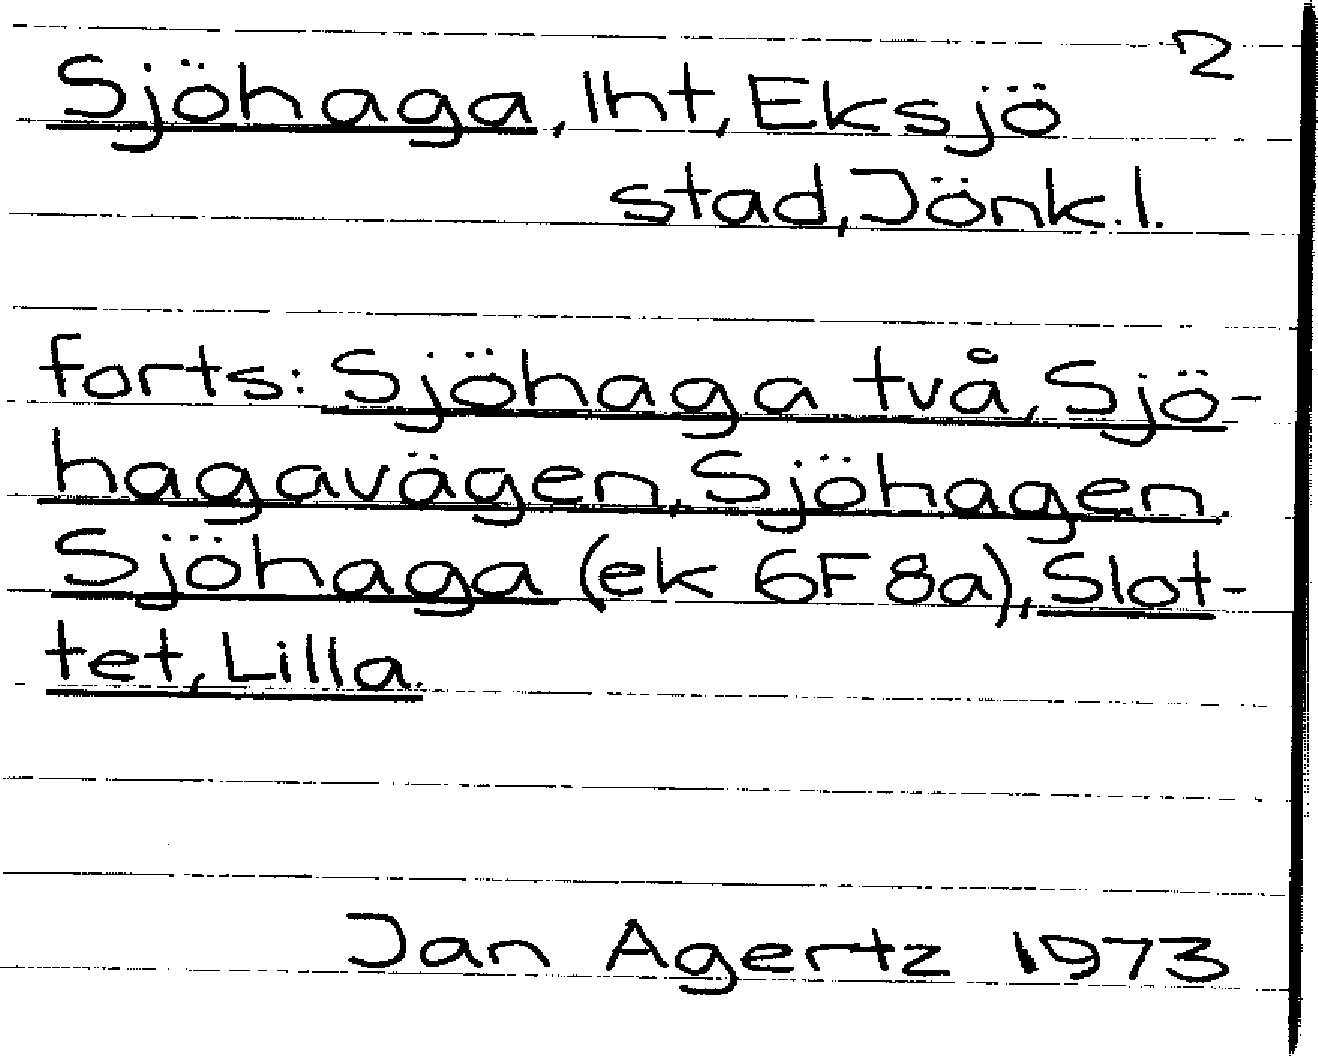 2
Sjöhaga, lht, Eksjö
stad, Jönk.l.
forts: Sjöhaga två, Sjö-
hagavägen, Sjöhagen
Sjöhaga (ek 6F 8a), Slot-
tet, Lilla.
Jan Agertz 1973